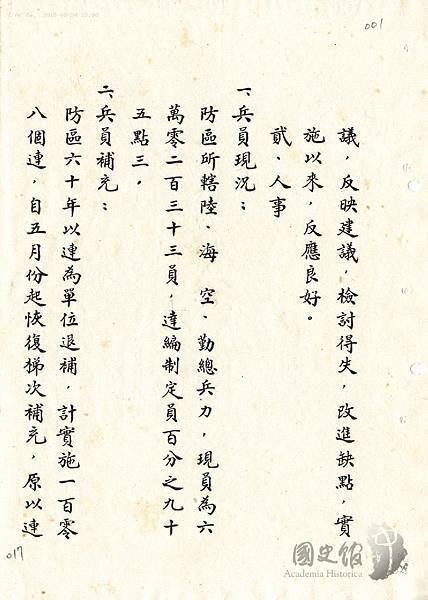 001
議，反映建議，檢討得失，改進缺點，實
施以來，反應良好。
貳、人事
一、兵員現況：
防區所轄陸、海、空、勤總兵力，現員為六
萬零二百三十三員，達編制定員百分之九十
五點三，
二、兵員補充：
防區六十年以連為單位退補，計實施一百零
八個連，自五月份起恢復梯次補充，原以連
017
國史館
Academia Historica